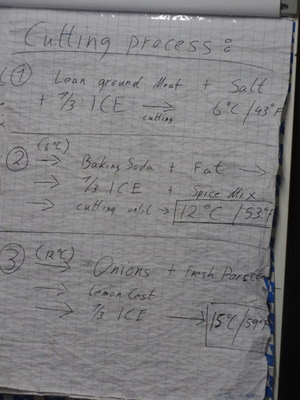 Cutting process:
① Lean ground Meat + Salt
+ 1/3 ICE → cutting 6°C/43°F
② (6°C) → Baking Soda + Fat →
→ 1/3 ICE + Spice Mix
→ cutting until → 12°C/53°F
③ (12°C) → Onions + Fresh Parsle
→ Lemon Cest
→ 1/3 ICE → 15°C/59°F